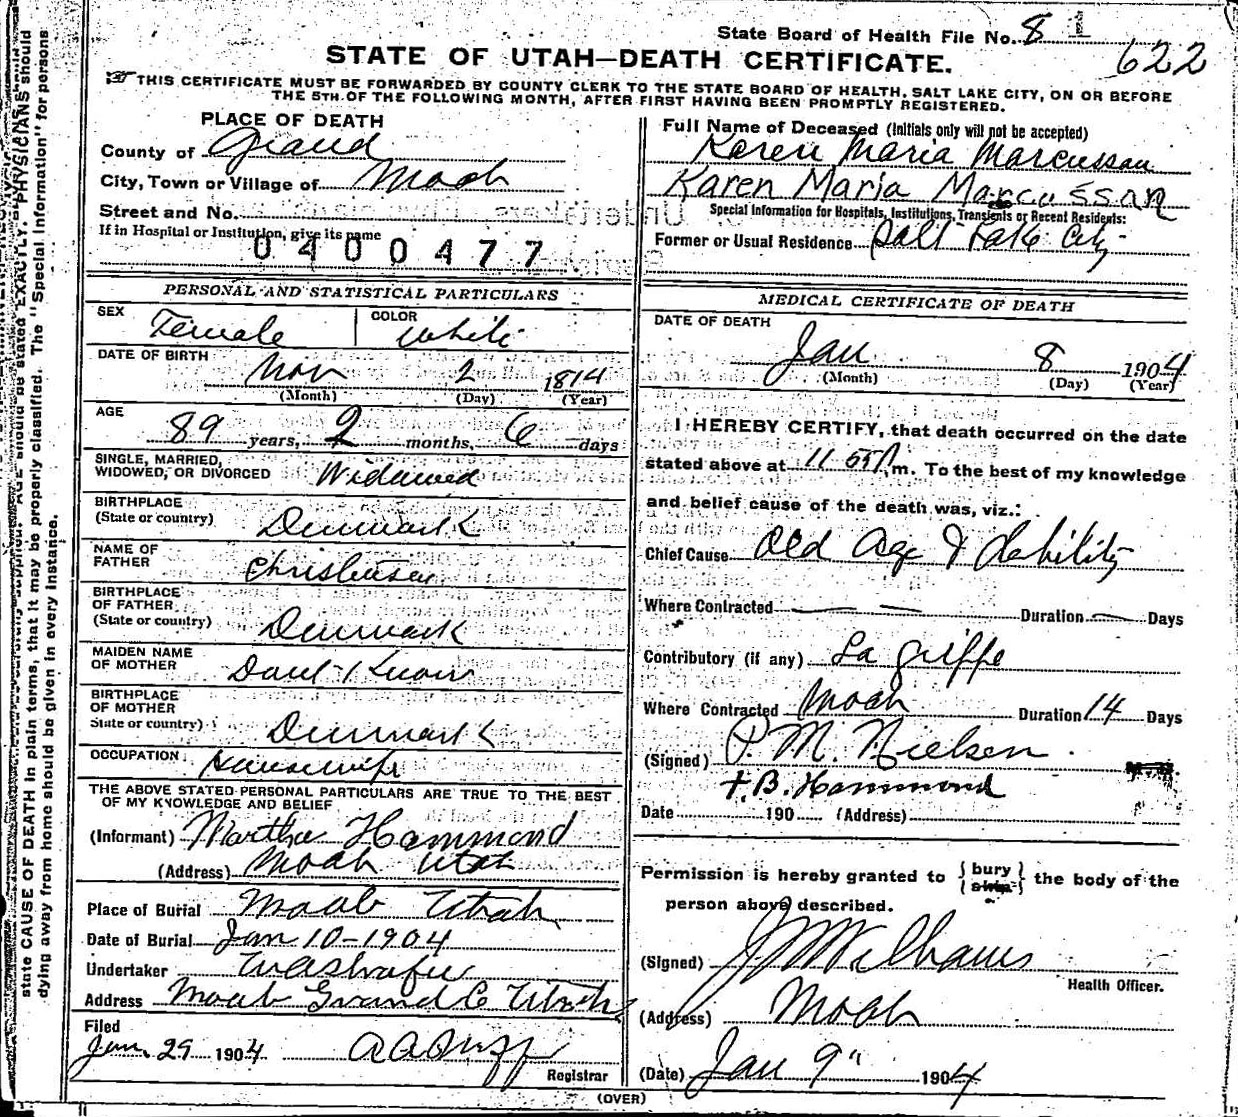 State Board of Health File No. 8 1
622
STATE OF UTAH—DEATH CERTIFICATE.
THIS CERTIFICATE MUST BE FORWARDED BY COUNTY CLERK TO THE STATE BOARD OF HEALTH, SALT LAKE CITY, ON OR BEFORE
THE 5TH OF THE FOLLOWING MONTH, AFTER FIRST HAVING BEEN PROMPTLY REGISTERED.
PLACE OF DEATH
County of Grand
City, Town or Village of Moab
Street and No.
If in Hospital or Institution, give its name
0400477
PERSONAL AND STATISTICAL PARTICULARS
SEX Female COLOR White
DATE OF BIRTH
Nov 2 1814
(Month) (Day) (Year)
AGE
89 years, 2 months, 6 days
SINGLE, MARRIED,
WIDOWED, OR DIVORCED Widowed
BIRTHPLACE
(State or country) Denmark
NAME OF
FATHER Christensen
BIRTHPLACE
OF FATHER
(State or country) Denmark
MAIDEN NAME
OF MOTHER Dont Know
BIRTHPLACE
OF MOTHER
State or country) Denmark
OCCUPATION Housewife
THE ABOVE STATED PERSONAL PARTICULARS ARE TRUE TO THE BEST
OF MY KNOWLEDGE AND BELIEF
(Informant) Martha Hammond
(Address) Moab Utah
Place of Burial Moab Utah
Date of Burial Jan 10-1904
Undertaker
Address Moab Grand Co Utah
Filed
Jan. 29 1904
Registrar
Full Name of Deceased (Initials only will not be accepted)
Karen Maria Marcussan
Karen Maria Marcussan
Special Information for Hospitals, Institutions, Transients or Recent Residents:
Former or Usual Residence Salt Lake City
MEDICAL CERTIFICATE OF DEATH
DATE OF DEATH
Jan 8 1904
(Month) (Day) (Year)
I HEREBY CERTIFY, that death occurred on the date
stated above at 11 55 A m. To the best of my knowledge
and belief cause of the death was, viz.:
Chief Cause Old Age & debility
Where Contracted — — Duration — Days
Contributory (if any) La Griffe
Where Contracted Moab Duration 14 Days
(Signed) P. M. Nielsen
F. B. Hammond
Date 190 (Address)
Permission is hereby granted to { bury } the body of the
person above described.
(Signed) J W Williams
Health Officer.
(Address) Moab
(Date) Jan 9" 1904
(OVER)
state CAUSE OF DEATH in plain terms, that it may be properly classified. The "Special Information" for persons
dying away from home should be given in every instance.